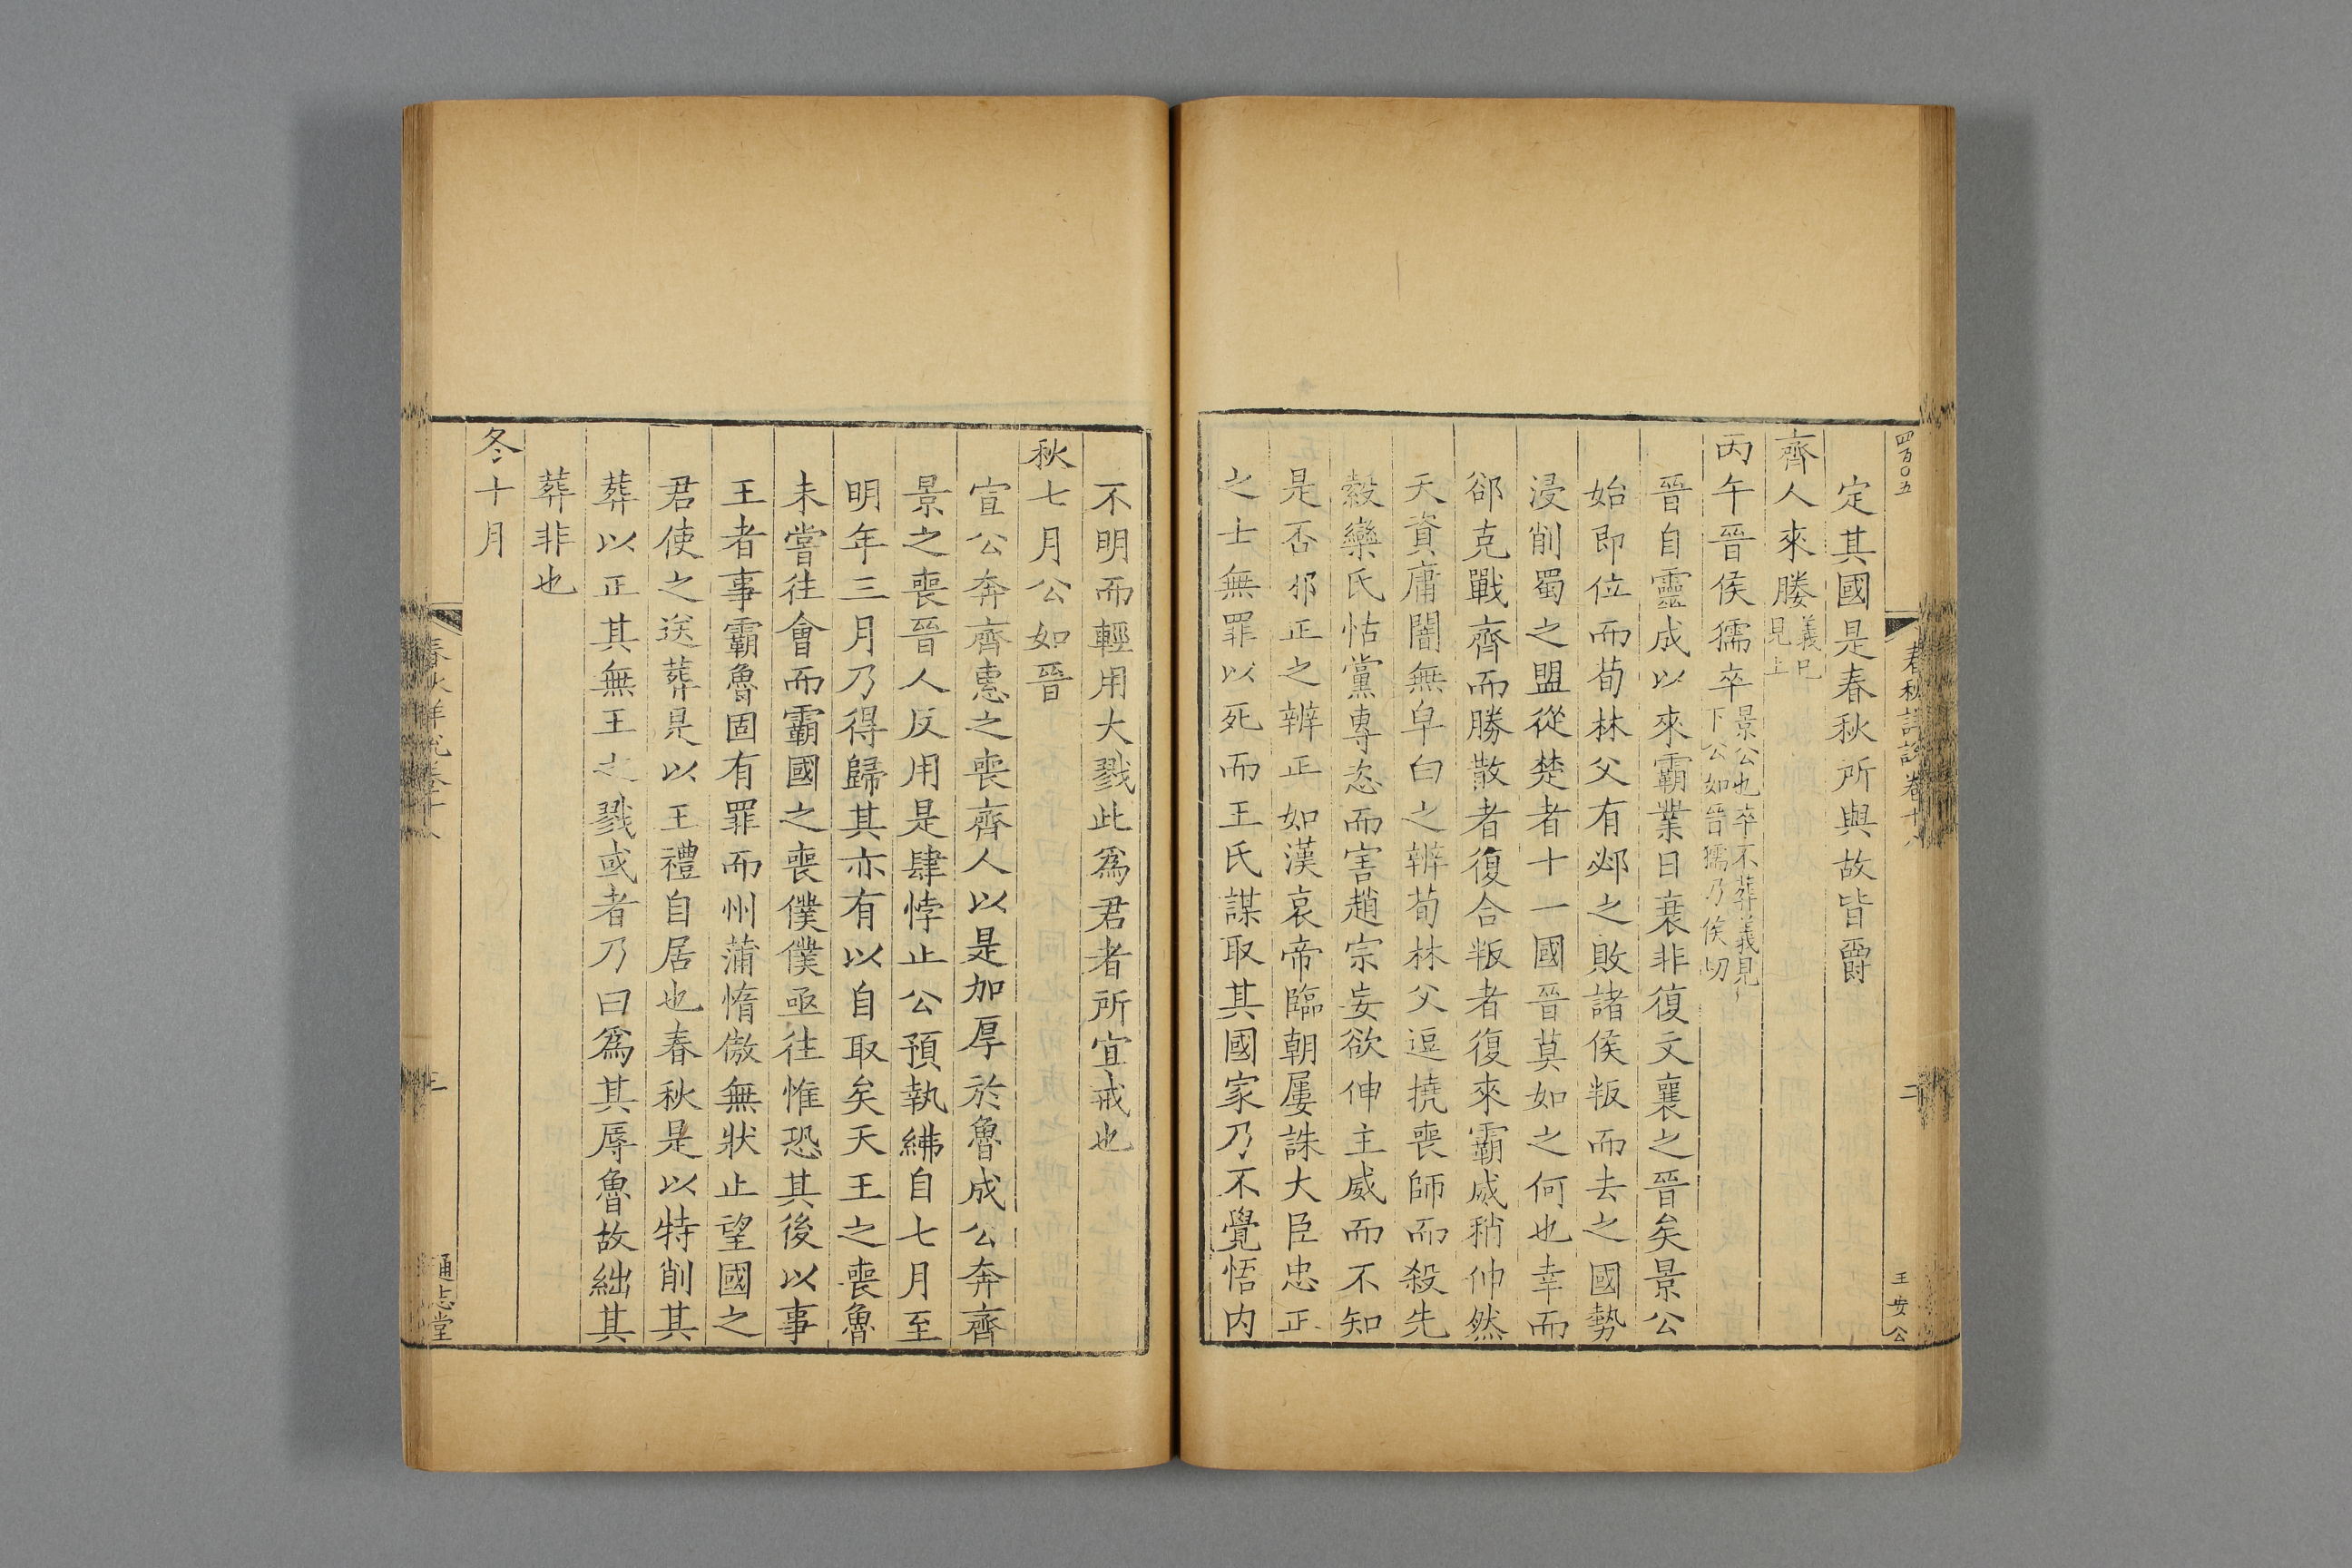 四百〇五
春秋詳說卷十八
二
王安公
定其國是春秋所與故皆爵
齊人來媵義已見上
丙午晉侯獳卒景公也卒不葬義見下公如晉獳乃侯切
晉自靈成以來霸業日衰非復文襄之晉矣景公
始即位而荀林父有邲之敗諸侯叛而去之國勢
浸削蜀之盟從楚者十一國晉莫如之何也幸而
郤克戰齊而勝散者復合叛者復來霸威稍伸然
天資庸闇無皁白之辨荀林父逗撓喪師而殺先
縠欒氏怙黨專恣而害趙宗妄欲伸主威而不知
是否邪正之辨正如漢哀帝臨朝屢誅大臣忠正
之士無罪以死而王氏謀取其國家乃不覺悟内
不明而輕用大戮此爲君者所宜戒也
秋七月公如晉
宣公奔齊惠之喪齊人以是加厚於魯成公奔齊
景之喪晉人反用是肆悖止公預執紼自七月至
明年三月乃得歸其亦有以自取矣天王之喪魯
未嘗往會而霸國之喪僕僕亟往惟恐其後以事
王者事霸魯固有罪而州蒲惰傲無狀止望國之
君使之送葬是以王禮自居也春秋是以特削其
葬以正其無王之戮或者乃曰爲其辱魯故絀其
葬非也
冬十月
春秋詳說卷十八
三
通志堂